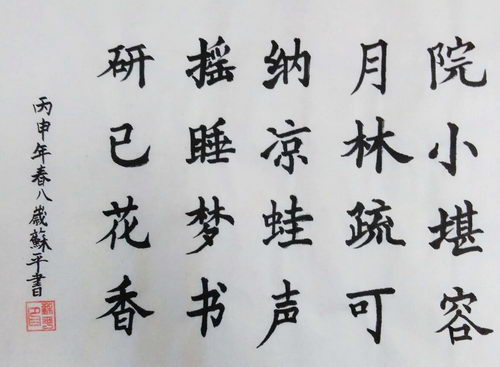 院小堪容
月林疏可
纳凉蛙声
摇睡梦书
研己花香
丙申年春八歲蘇平書